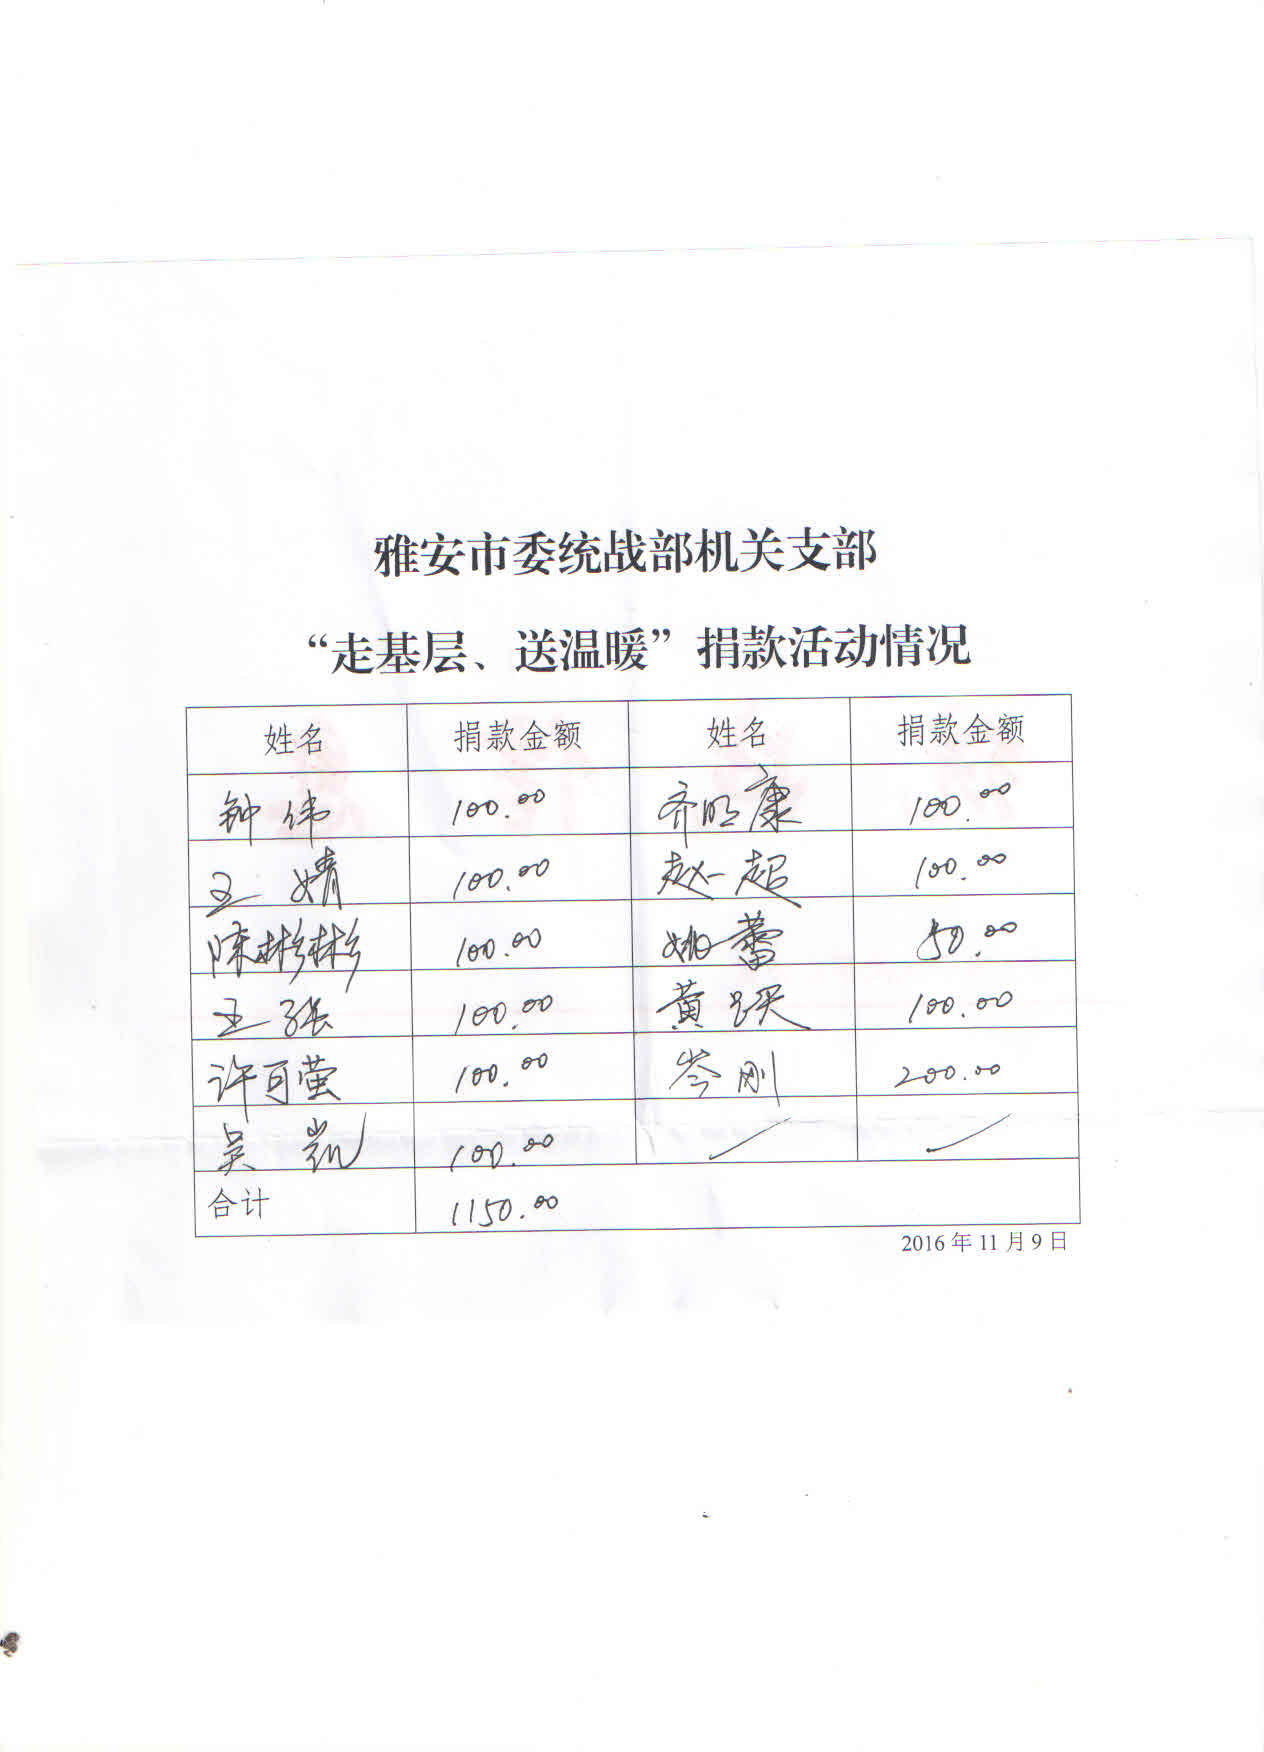 雅安市委统战部机关支部
“走基层、送温暖”捐款活动情况
姓名 捐款金额 姓名 捐款金额
钟伟 100.00 齐明康 100.00
王婧 100.00 赵一超 100.00
陈彬彬 100.00 姚蕾 50.00
王张 100.00 黄跃 100.00
许可萤 100.00 岑刚 200.00
吴凯 100.00
合计 1150.00
2016年11月9日